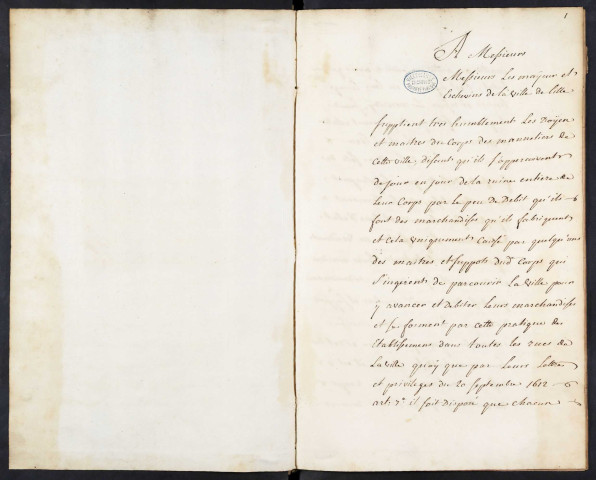 1
A Messieurs
Messieurs Les majeur et
Eschevins de la ville de Lille
Supplient tres humblement Les doÿen
et maitres du Corps des manneliers de
cette ville, disant qu'ils s'apperçoivent
de jour en jour de la ruine entiere de
leur Corps par le peu de Debit qu'ils
font des marchandises qu'ils fabriquent
et cela uniquement causé par quelqu'uns
des maitres et supposts dud. Corps qui
s'ingerent de parcourir La ville pour
y avancer et Debiter Leurs marchandises
et se forment par cette pratique des
Etablissemens dans toutes les rues de
La ville quoÿ que par Leurs Lettres
et privileges du 20 septembre 1612
art. 7e il soit Disposé que chacun